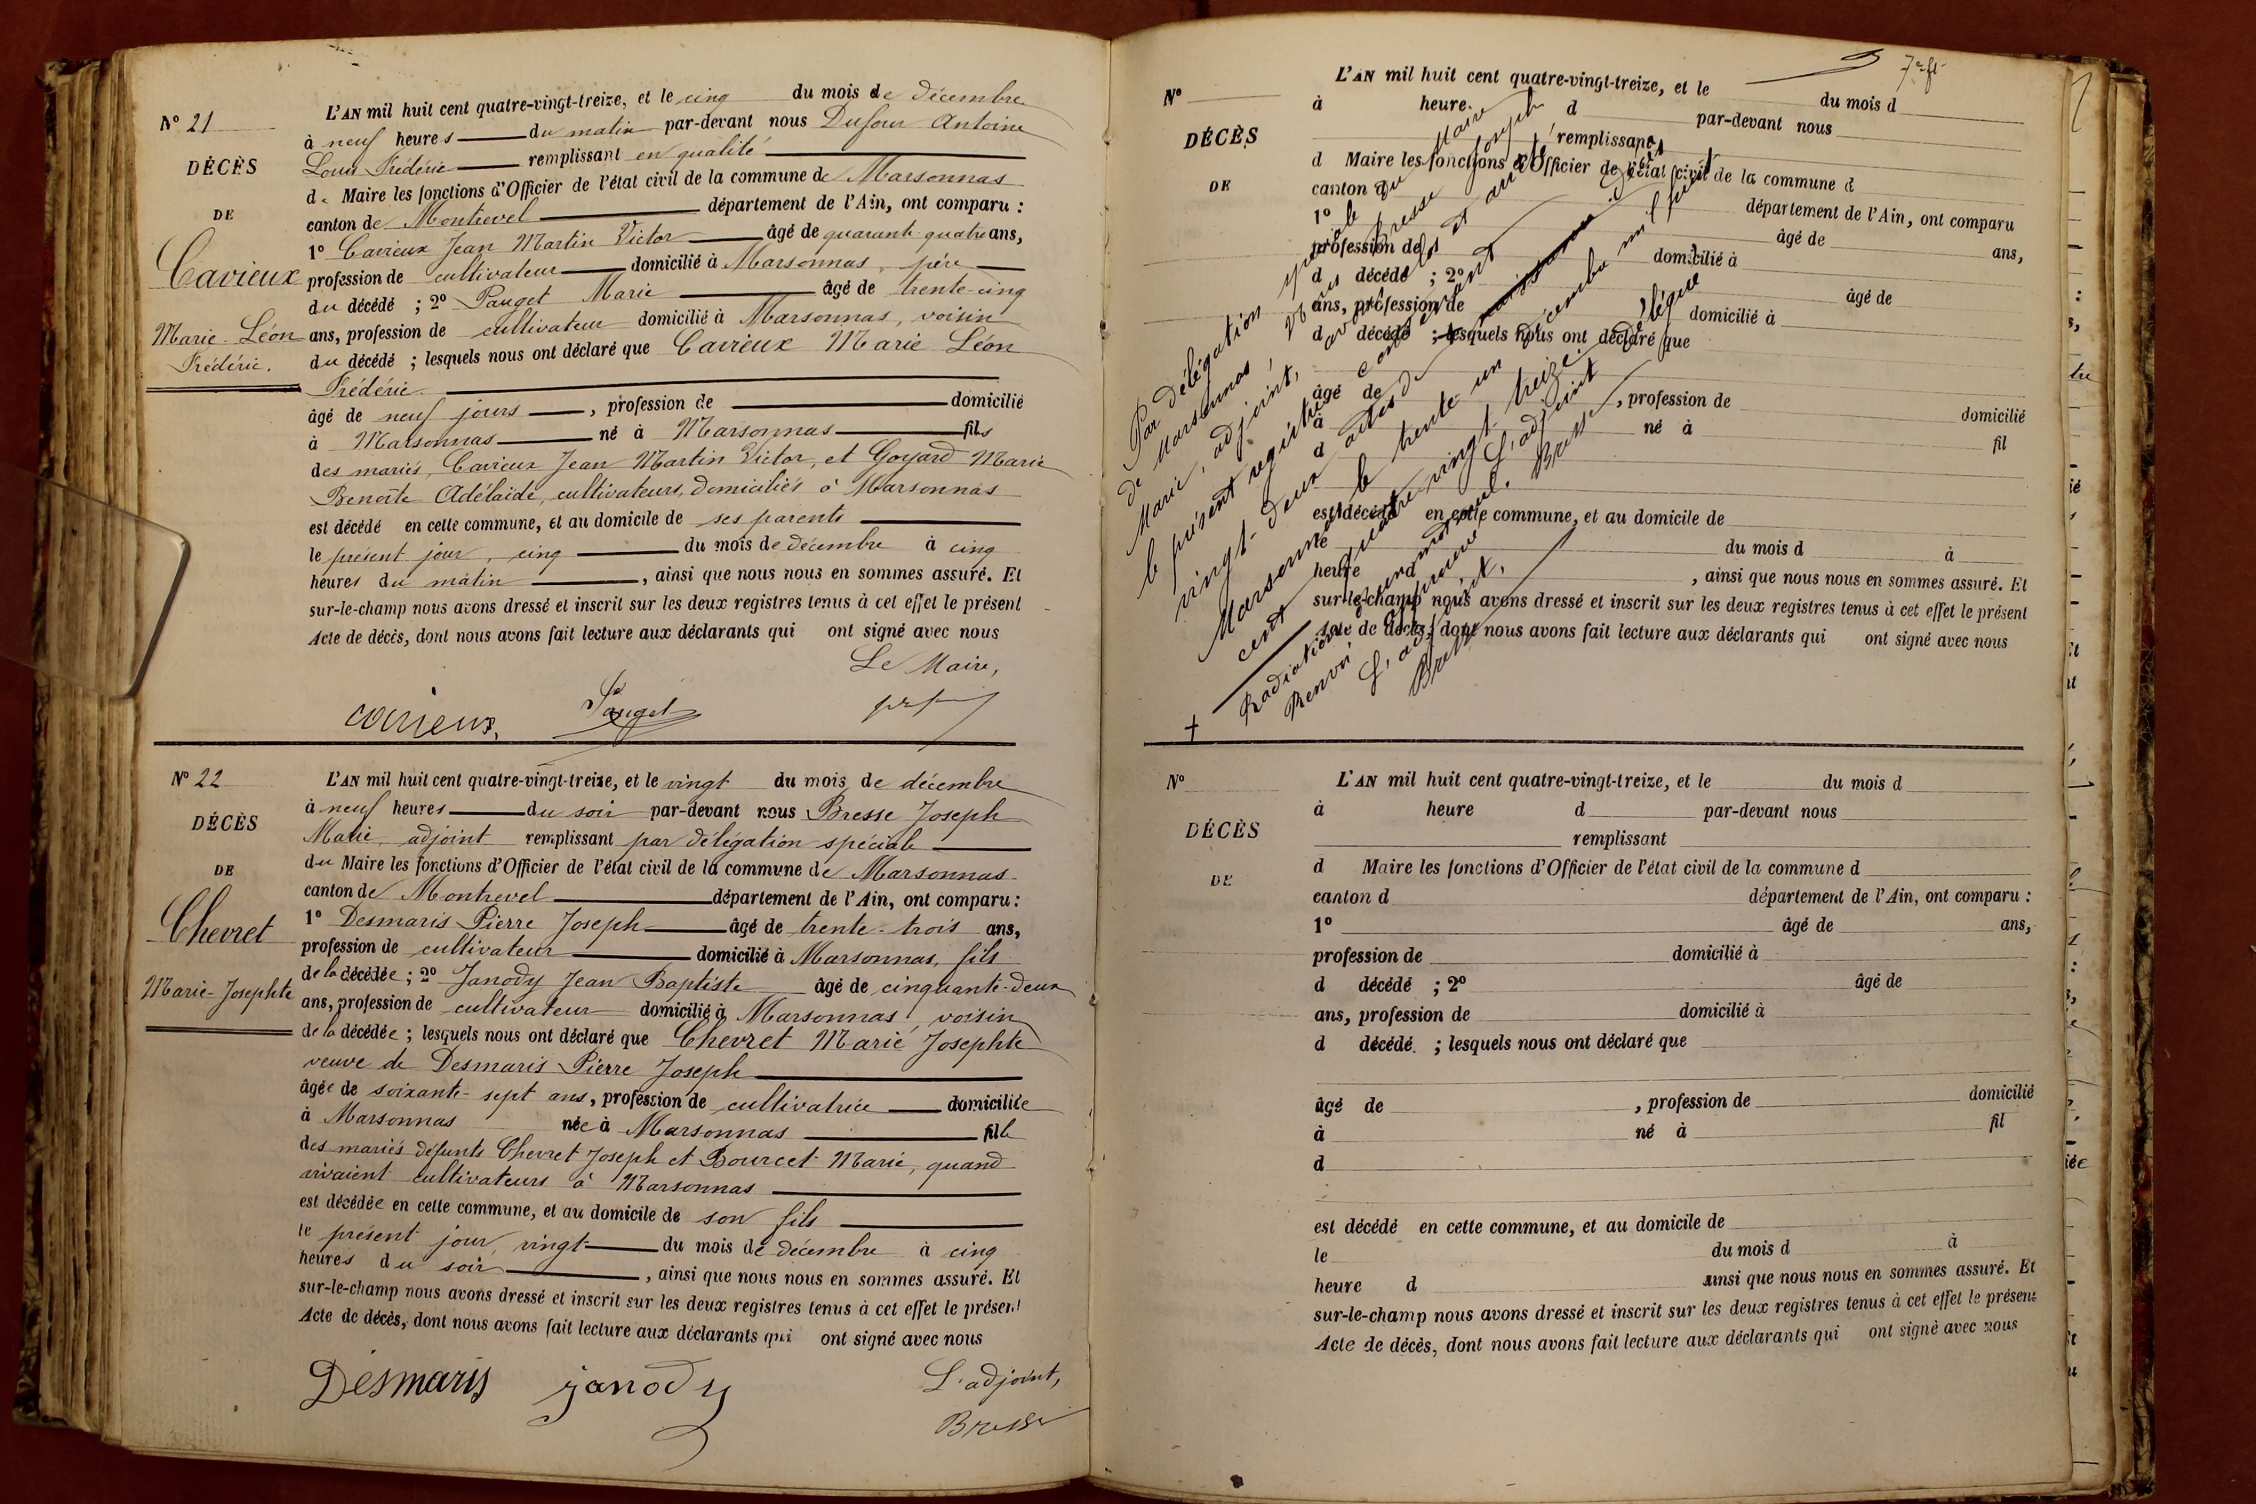 N° 21
DÉCÈS
DE
Cavieux
Marie Léon
Frédéric.
L'AN mil huit cent quatre-vingt-treize, et le cinq du mois de décembre
à neuf heures du matin par-devant nous Dufour Antoine
Louis Frédéric remplissant en qualité
de Maire les fonctions d'Officier de l'état civil de la commune de Marsonnas
canton de Montrevel département de l'Ain, ont comparu :
1° Cavieux Jean Martin Victor âgé de quarante-quatre ans,
profession de cultivateur domicilié à Marsonnas, père
du décédé ; 2° Pauget Marie âgé de trente-cinq
ans, profession de cultivateur domicilié à Marsonnas, voisin
du décédé ; lesquels nous ont déclaré que Cavieux Marie Léon
Frédéric
âgé de neuf jours, profession de domicilié
à Marsonnas né à Marsonnas fils
des mariés, Cavieux Jean Martin Victor, et Goyard Marie
Benoîte Adélaïde, cultivateurs, domiciliés à Marsonnas
est décédé en cette commune, et au domicile de ses parents
le présent jour, cinq du mois de décembre à cinq
heures du matin, ainsi que nous nous en sommes assuré. Et
sur-le-champ nous avons dressé et inscrit sur les deux registres tenus à cet effet le présent
Acte de décès, dont nous avons fait lecture aux déclarants qui ont signé avec nous
Le Maire,
cavieux. Pauget
N° 22
DÉCÈS
DE
Chevret
Marie-Josephte
L'AN mil huit cent quatre-vingt-treize, et le vingt du mois de décembre
à neuf heures du soir par-devant nous Bresse Joseph
Marie, adjoint remplissant par délégation spéciale
du Maire les fonctions d'Officier de l'état civil de la commune de Marsonnas
canton de Montrevel département de l'Ain, ont comparu :
1° Desmaris Pierre Joseph âgé de trente-trois ans,
profession de cultivateur domicilié à Marsonnas, fils
de la décédée ; 2° Janody Jean Baptiste âgé de cinquante-deux
ans, profession de cultivateur domicilié à Marsonnas, voisin
de la décédée ; lesquels nous ont déclaré que Chevret Marie Josephte
veuve de Desmaris Pierre Joseph
âgée de soixante-sept ans, profession de cultivatrice domiciliée
à Marsonnas née à Marsonnas fille
des mariés défunts Chevret Joseph et Bourcet Marie, quand
vivaient cultivateurs à Marsonnas
est décédée en cette commune, et au domicile de son fils
le présent jour, vingt du mois de décembre à cinq
heures du soir, ainsi que nous nous en sommes assuré. Et
sur-le-champ nous avons dressé et inscrit sur les deux registres tenus à cet effet le présent
Acte de décès, dont nous avons fait lecture aux déclarants qui ont signé avec nous
L'adjoint,
Desmaris janody Bresse
7e ft
N°
DÉCÈS
DE
L'AN mil huit cent quatre-vingt-treize, et le du mois d
à heure d par-devant nous
remplissant
d Maire les fonctions d'Officier de l'état civil de la commune d
canton d département de l'Ain, ont comparu
1° âgé de ans,
profession de domicilié à
d décédé ; 2° âgé de
ans, profession de domicilié à
d décédé ; lesquels nous ont déclaré que
âgé de , profession de domicilié
à né à fil
d
est décédé en cette commune, et au domicile de
le du mois d à
heure d , ainsi que nous nous en sommes assuré. Et
sur-le-champ nous avons dressé et inscrit sur les deux registres tenus à cet effet le présent
Acte de décès, dont nous avons fait lecture aux déclarants qui ont signé avec nous
Par délégation spéciale du Maire
de Marsonnas, Nous Bresse Joseph
Marie, adjoint, avons clos et arrêté
le présent registre contenant
vingt-deux actes de naissance
Marsonnas le trente un décembre mil huit
cent quatre-vingt-treize.
L'adjoint délégué
Bresse
Radiation d'un mot nul.
Renvoi approuvé
L'adjoint,
Bresse
+ décès
N°
DÉCÈS
DE
L'AN mil huit cent quatre-vingt-treize, et le du mois d
à heure d par-devant nous
remplissant
d Maire les fonctions d'Officier de l'état civil de la commune d
canton d département de l'Ain, ont comparu :
1° âgé de ans,
profession de domicilié à
d décédé ; 2° âgé de
ans, profession de domicilié à
d décédé ; lesquels nous ont déclaré que
âgé de , profession de domicilié
à né à fil
d
est décédé en cette commune, et au domicile de
le du mois d à
heure d ainsi que nous nous en sommes assuré. Et
sur-le-champ nous avons dressé et inscrit sur les deux registres tenus à cet effet le présent
Acte de décès, dont nous avons fait lecture aux déclarants qui ont signé avec nous